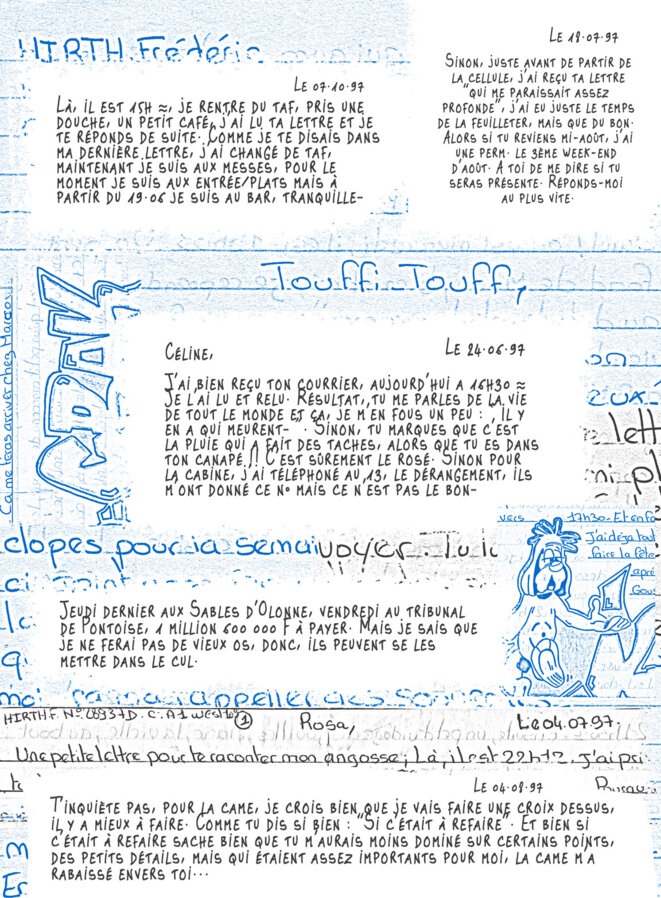 HIRTH Frédéric
Le 07·10·97
Là, il est 15h ≈, je rentre du taf, pris une
douche, un petit café, j'ai lu ta lettre et je
te réponds de suite· Comme je te disais dans
ma dernière lettre, j'ai changé de taf,
maintenant je suis aux messes, pour le
moment je suis aux entrée/plats mais à
partir du 19·06 je suis au bar, tranquille-
Le 18·07·97
Sinon, juste avant de partir de
la cellule, j'ai reçu ta lettre
"qui me paraissait assez
profonde", j'ai eu juste le temps
de la feuilleter, mais que du bon·
Alors si tu reviens mi-août, j'ai
une perm· le 3ème week-end
d'août· A toi de me dire si tu
seras présente· Réponds-moi
au plus vite·
Touffi-Touff,
Ca me feras arriver chez Marcou
Céline,
Le 24·06·97
J'ai bien reçu ton courrier, aujourd'hui a 16h30 ≈
Je l'ai lu et relu· Résultat, tu me parles de la vie
de tout le monde et ça, je m'en fous un peu : , il y
en a qui meurent- · Sinon, tu marques que c'est
la pluie qui a fait des taches, alors que tu es dans
ton canapé !! C'est sûrement le rosé· Sinon pour
la cabine, j'ai téléphoné au 13, le dérangement, ils
m'ont donné ce n° mais ce n'est pas le bon-
lett
vers 17h30. Et enfo
J'ai déja tout
faire la fête
aprè
Gous
clopes pour la semai
voyer. Tu lu
Jeudi dernier aux Sables d'Olonne, vendredi au tribunal
de Pontoise, 1 million 600 000 F à payer· Mais je sais que
je ne ferai pas de vieux os, donc, ils peuvent se les
mettre dans le cul·
HIRTH F. N° 28937D. C. A1 west 109 1
Rosa,
Le 04.07.97.
Une petite lettre pour te raconter mon angosse; Là, il est 22h12, J'ai pri
Le 04·08·97
T'inquiète pas, pour la came, je crois bien que je vais faire une croix dessus,
il y a mieux à faire· Comme tu dis si bien : "Si c'était à refaire"· Et bien si
c'était à refaire sache bien que tu m'aurais moins dominé sur certains points,
des petits détails, mais qui étaient assez importants pour moi, la came m'a
rabaissé envers toi···